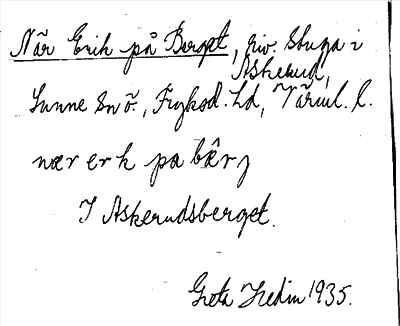 När Erik på Berget, riv. Stuga i
Askerud,
Sunne Snö., Fryksd. Hd, Värml. l.
nær erk pa bærj
I Askerudsberget.
Greta Hedin 1935.